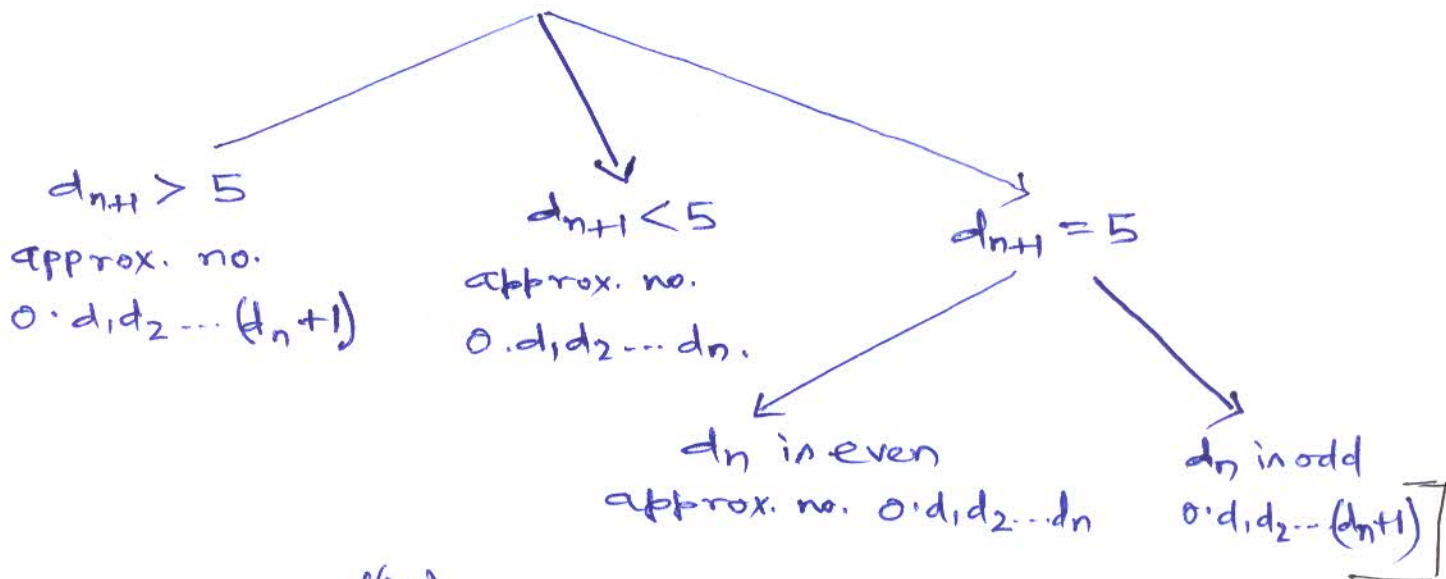 d_{n+1} > 5
approx. no.
0.d_1d_2 --- (d_n+1)
d_{n+1} < 5
approx. no.
0.d_1d_2 --- d_n.
d_{n+1} = 5
d_n is even
approx. no. 0.d_1d_2...d_n
d_n is odd
0.d_1d_2--- (d_n+1)